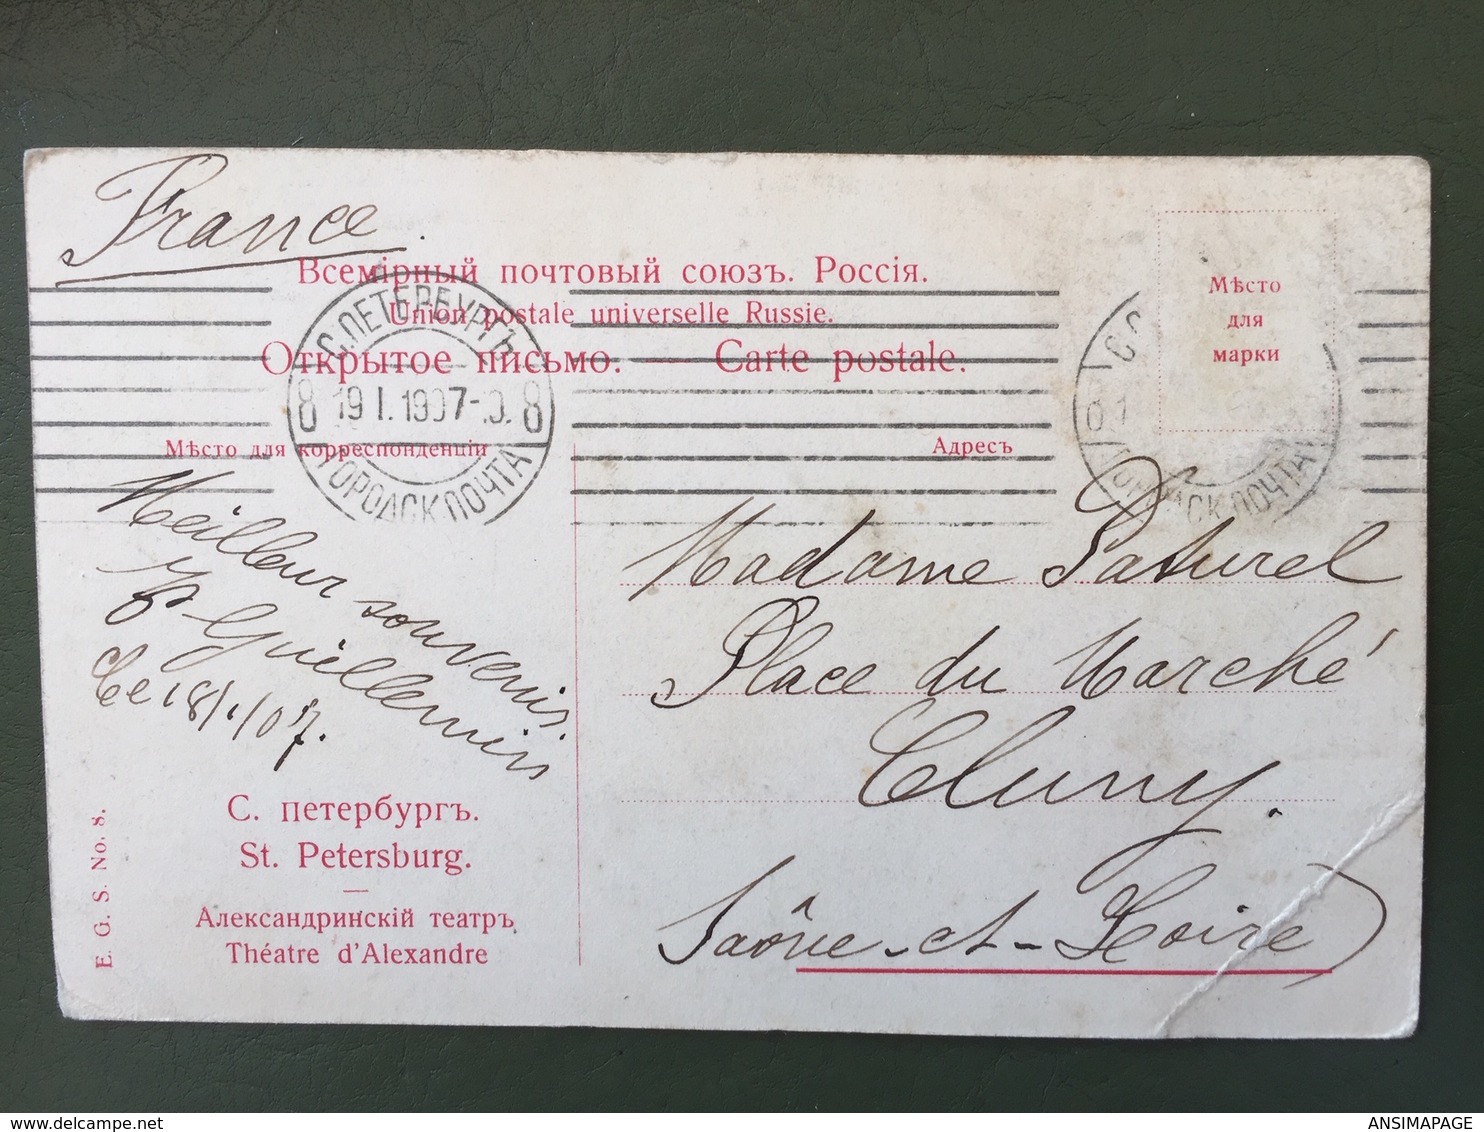 France.
Всемірный почтовый союзъ. Россія.
Union postale universelle Russie.
Открытое письмо. — Carte postale.
Мѣсто
для
марки
С.ПЕТЕРБУРГЪ
8 19 I. 1907 8
ГОРОДСК.ПОЧТА
ГОРОДСК.ПОЧТА
Мѣсто для корреспонденціи
Адресъ
Meilleur souvenir
Guillemin
Le 18/1/07.
Madame Paturel
Place du Marché
Cluny.
Saône-et-Loire
С. петербургъ.
St. Petersburg.
—
Александринскій театръ
Théatre d'Alexandre
E. G. S. No. 8.
ANSIMAPAGE